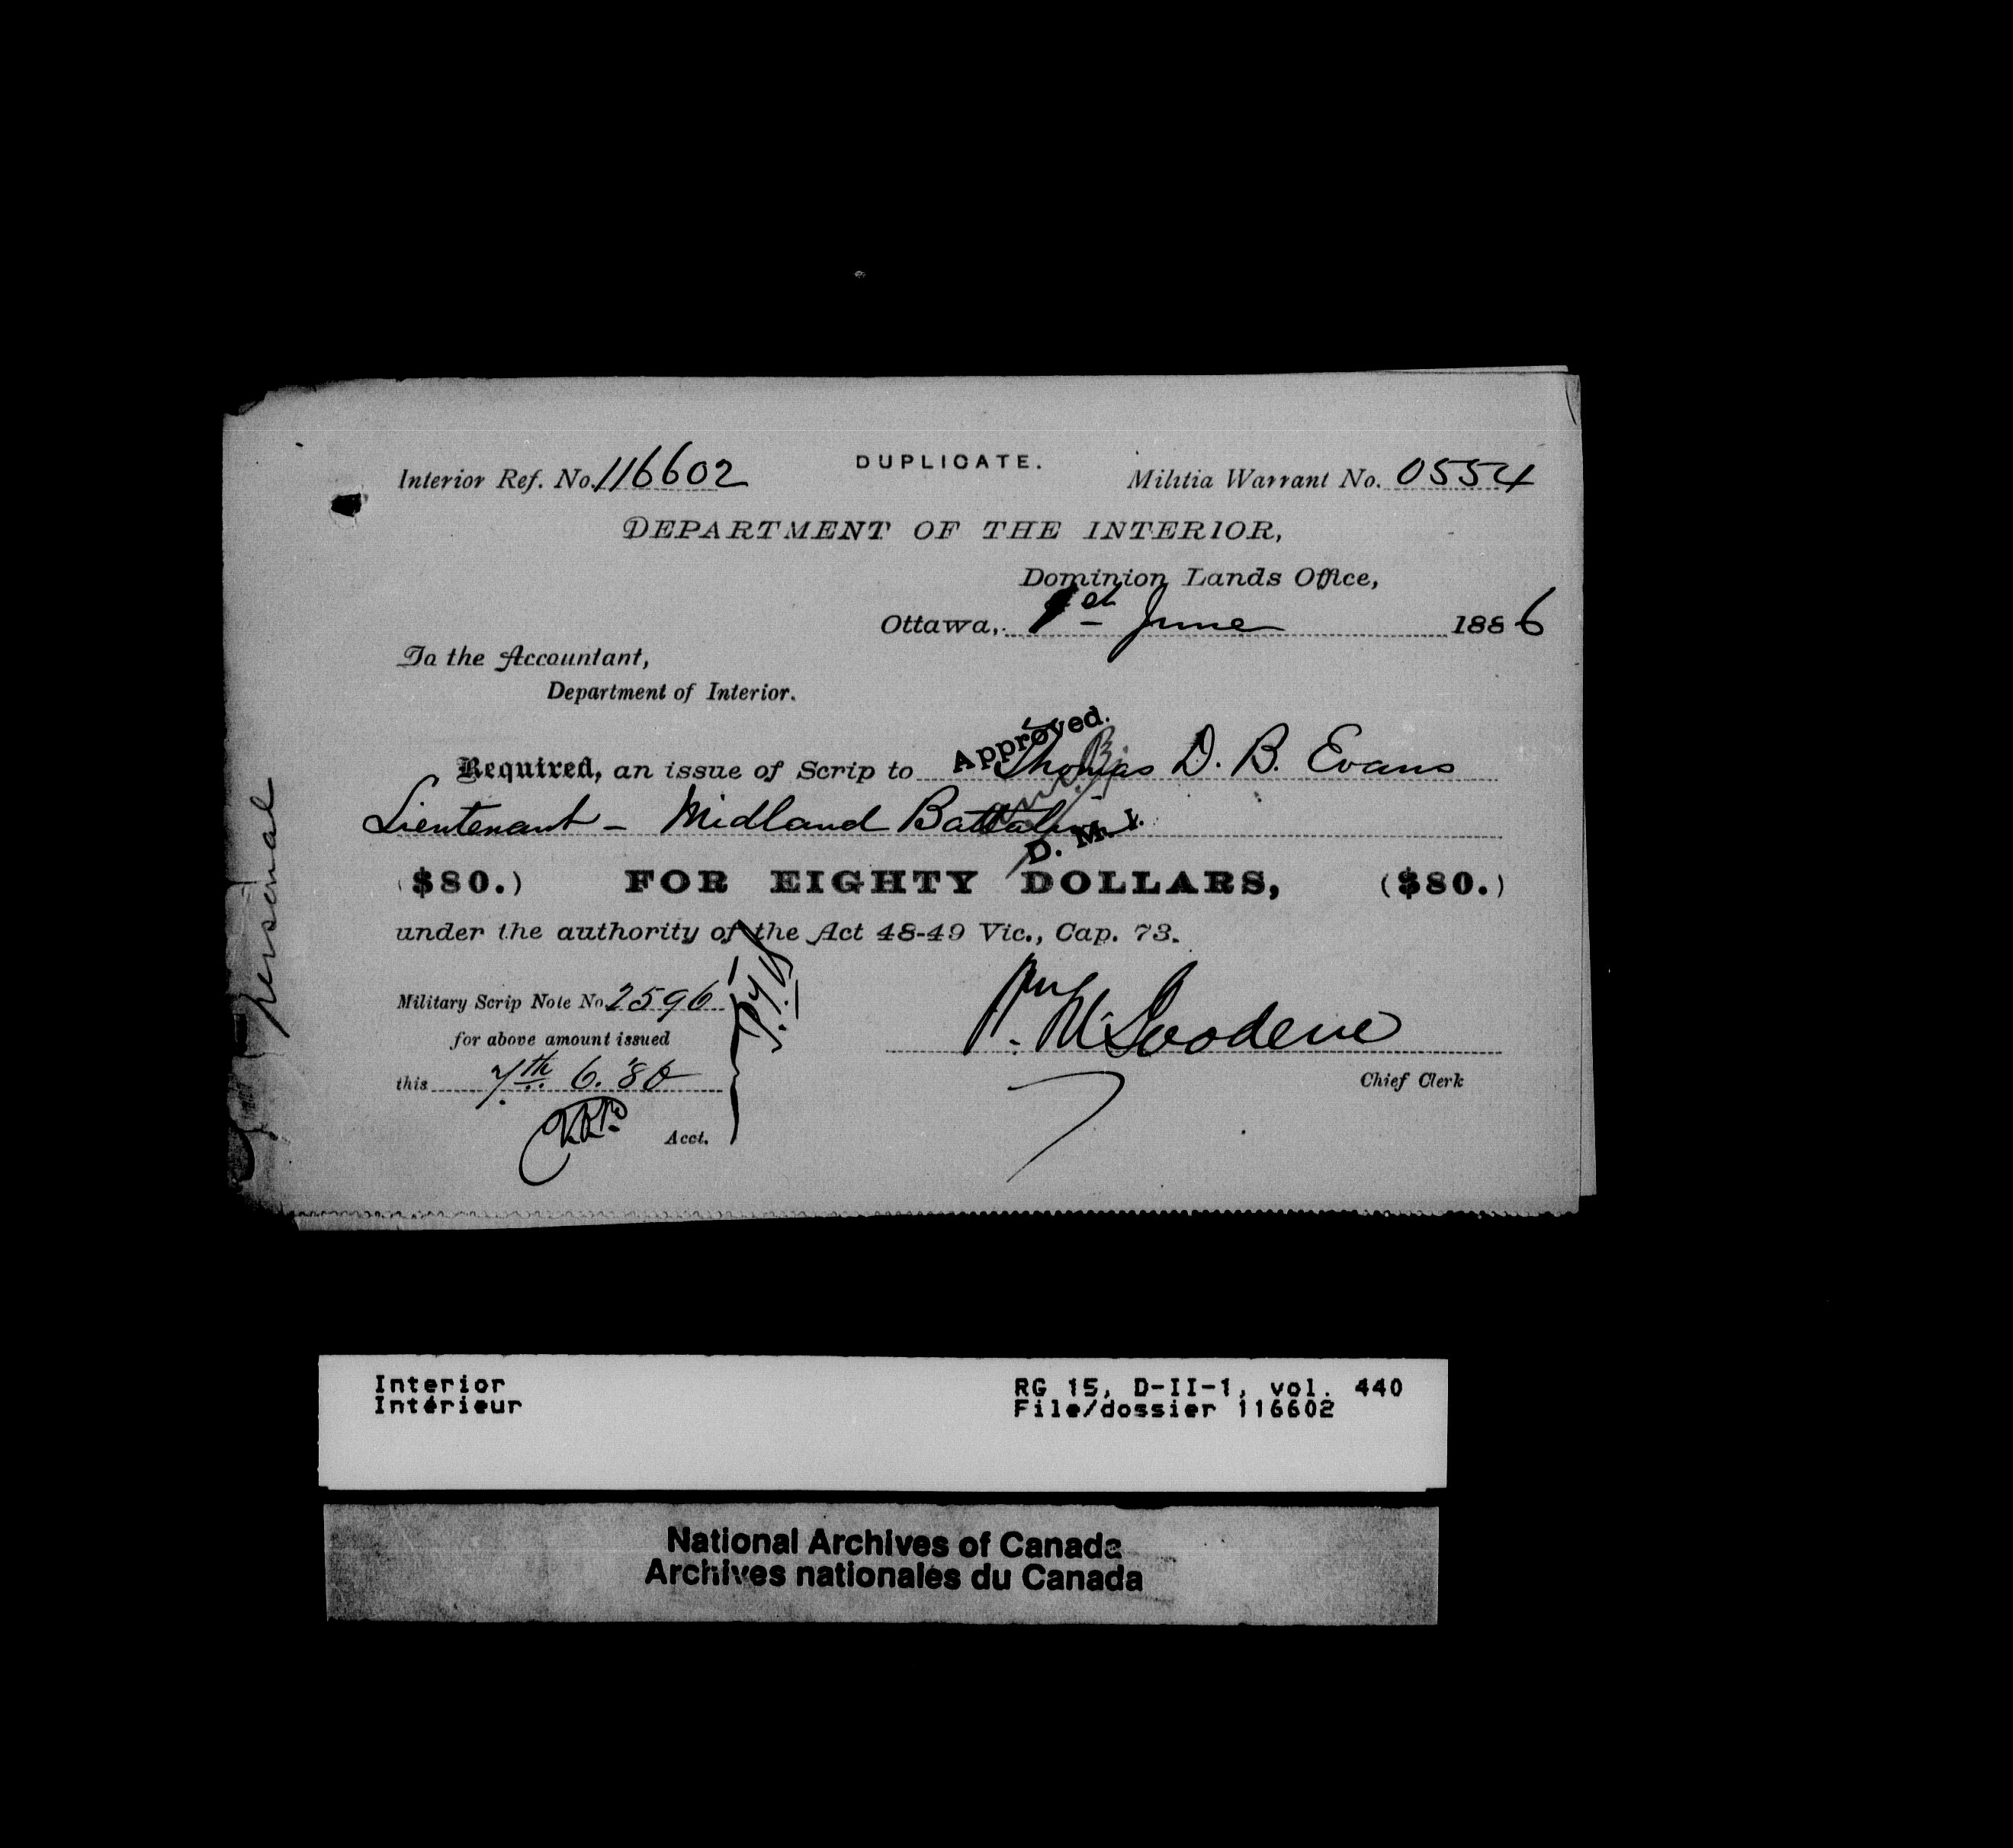 DUPLICATE.
Interior Ref. No. 116602 Militia Warrant No. 0554
DEPARTMENT OF THE INTERIOR,
Dominion Lands Office,
Ottawa, 1st June 1886
To the Accountant,
Department of Interior.
Approved.
Required, an issue of Scrip to Thomas D. B. Evans
Lieutenant - Midland Battalion
D. M. I.
($80.) FOR EIGHTY DOLLARS, ($80.)
under the authority of the Act 48-49 Vic., Cap. 73.
Military Scrip Note No. 2596
for above amount issued
this 7th 6. '86
Acct.
Chief Clerk
personal
Interior
Intérieur
RG 15, D-II-1, vol. 440
File/dossier 116602
National Archives of Canada
Archives nationales du Canada